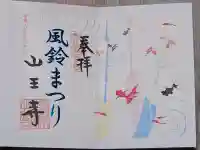 奉拝
風鈴まつり
山王寺